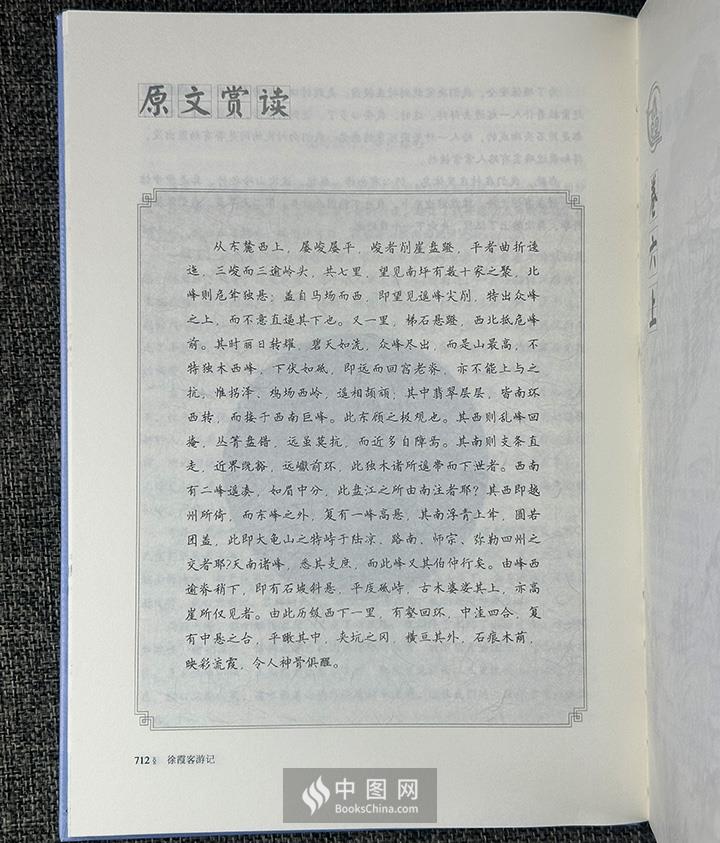 原文赏读
从东麓西上，屡峻屡平，峻者削崖盘蹬，平者曲折逶
迤，三峻而三逾岭头，共七里，望见南坪有数十家之聚，北
峰则危耸独悬；盖自马场而西，即望见遥峰尖削，特出众峰
之上，而不意直逼其下也。又一里，梯石悬蹬，西北抵危峰
前。其时丽日转耀，碧天如洗，众峰尽出，而是山最高，不
特独木西峰，下伏如砥，即远而回宫老脊，亦不能上与之
抗，惟拐泽、鸡场西岭，遥相颉颃；其中翡翠层层，皆南环
西转，而接于西南巨峰。此东顾之极观也。其西则乱峰回
掩，丛箐盘错，远虽莫抗，而近多自障焉。其南则支条直
走，近界既豁，远巘前环，此独木诸所遥带而下泄者。西南
有二峰遥凑，如眉中分，此盘江之所由南注者耶？其西即越
州所倚，而东峰之外，复有一峰高悬，其南浮青上耸，圆若
团盖，此即大龟山之特峙于陆凉、路南、师宗、弥勒四州之
交者耶?天南诸峰，悉其支庶，而此峰又其伯仲行矣。由峰西
逾脊稍下，即有石坡斜悬，平庋砥峙，古木婆娑其上，亦高
崖所仅见者。由此历级西下一里，有壑回环，中洼四合，复
有中悬之台，平瞰其中，夹坑之冈，横亘其外，石痕木荫，
映彩流霞，令人神骨俱醒。
712 徐霞客游记
卷六上
中图网
BooksChina.com